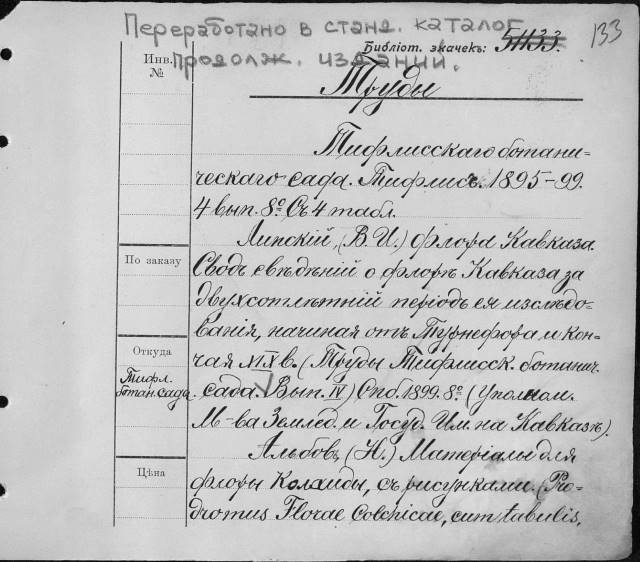 Переработано в станд. каталог
продолж. изданий.
133
Библіот. значекъ: 51133.
Инв.
№
Труды
Тифлисскаго ботани=
ческаго сада. Тифлисъ. 1895-99.
4 вып. 8º. Съ 4 табл.
Липскій, (В. И.) Флора Кавказа.
По заказу
Сводъ свѣдѣній о флорѣ Кавказа за
двухсотлѣтній періодъ ея изслѣдо-
ванія, начиная отъ Турнефора и кон-
Откуда
чая XIX в. (Труды Тифлисск. ботанич.
Тифл.
ботан. сада
сада. Вып. IV) Спб. 1899. 8º. (Уполном.
М-ва Землед. и Госуд. Им. на Кавказѣ).
Альбовъ, (Н.) Матеріалы для
Цѣна
флоры Колхиды, съ рисунками. (Pro-
dromus Florae Colchicae, cum tabulis,